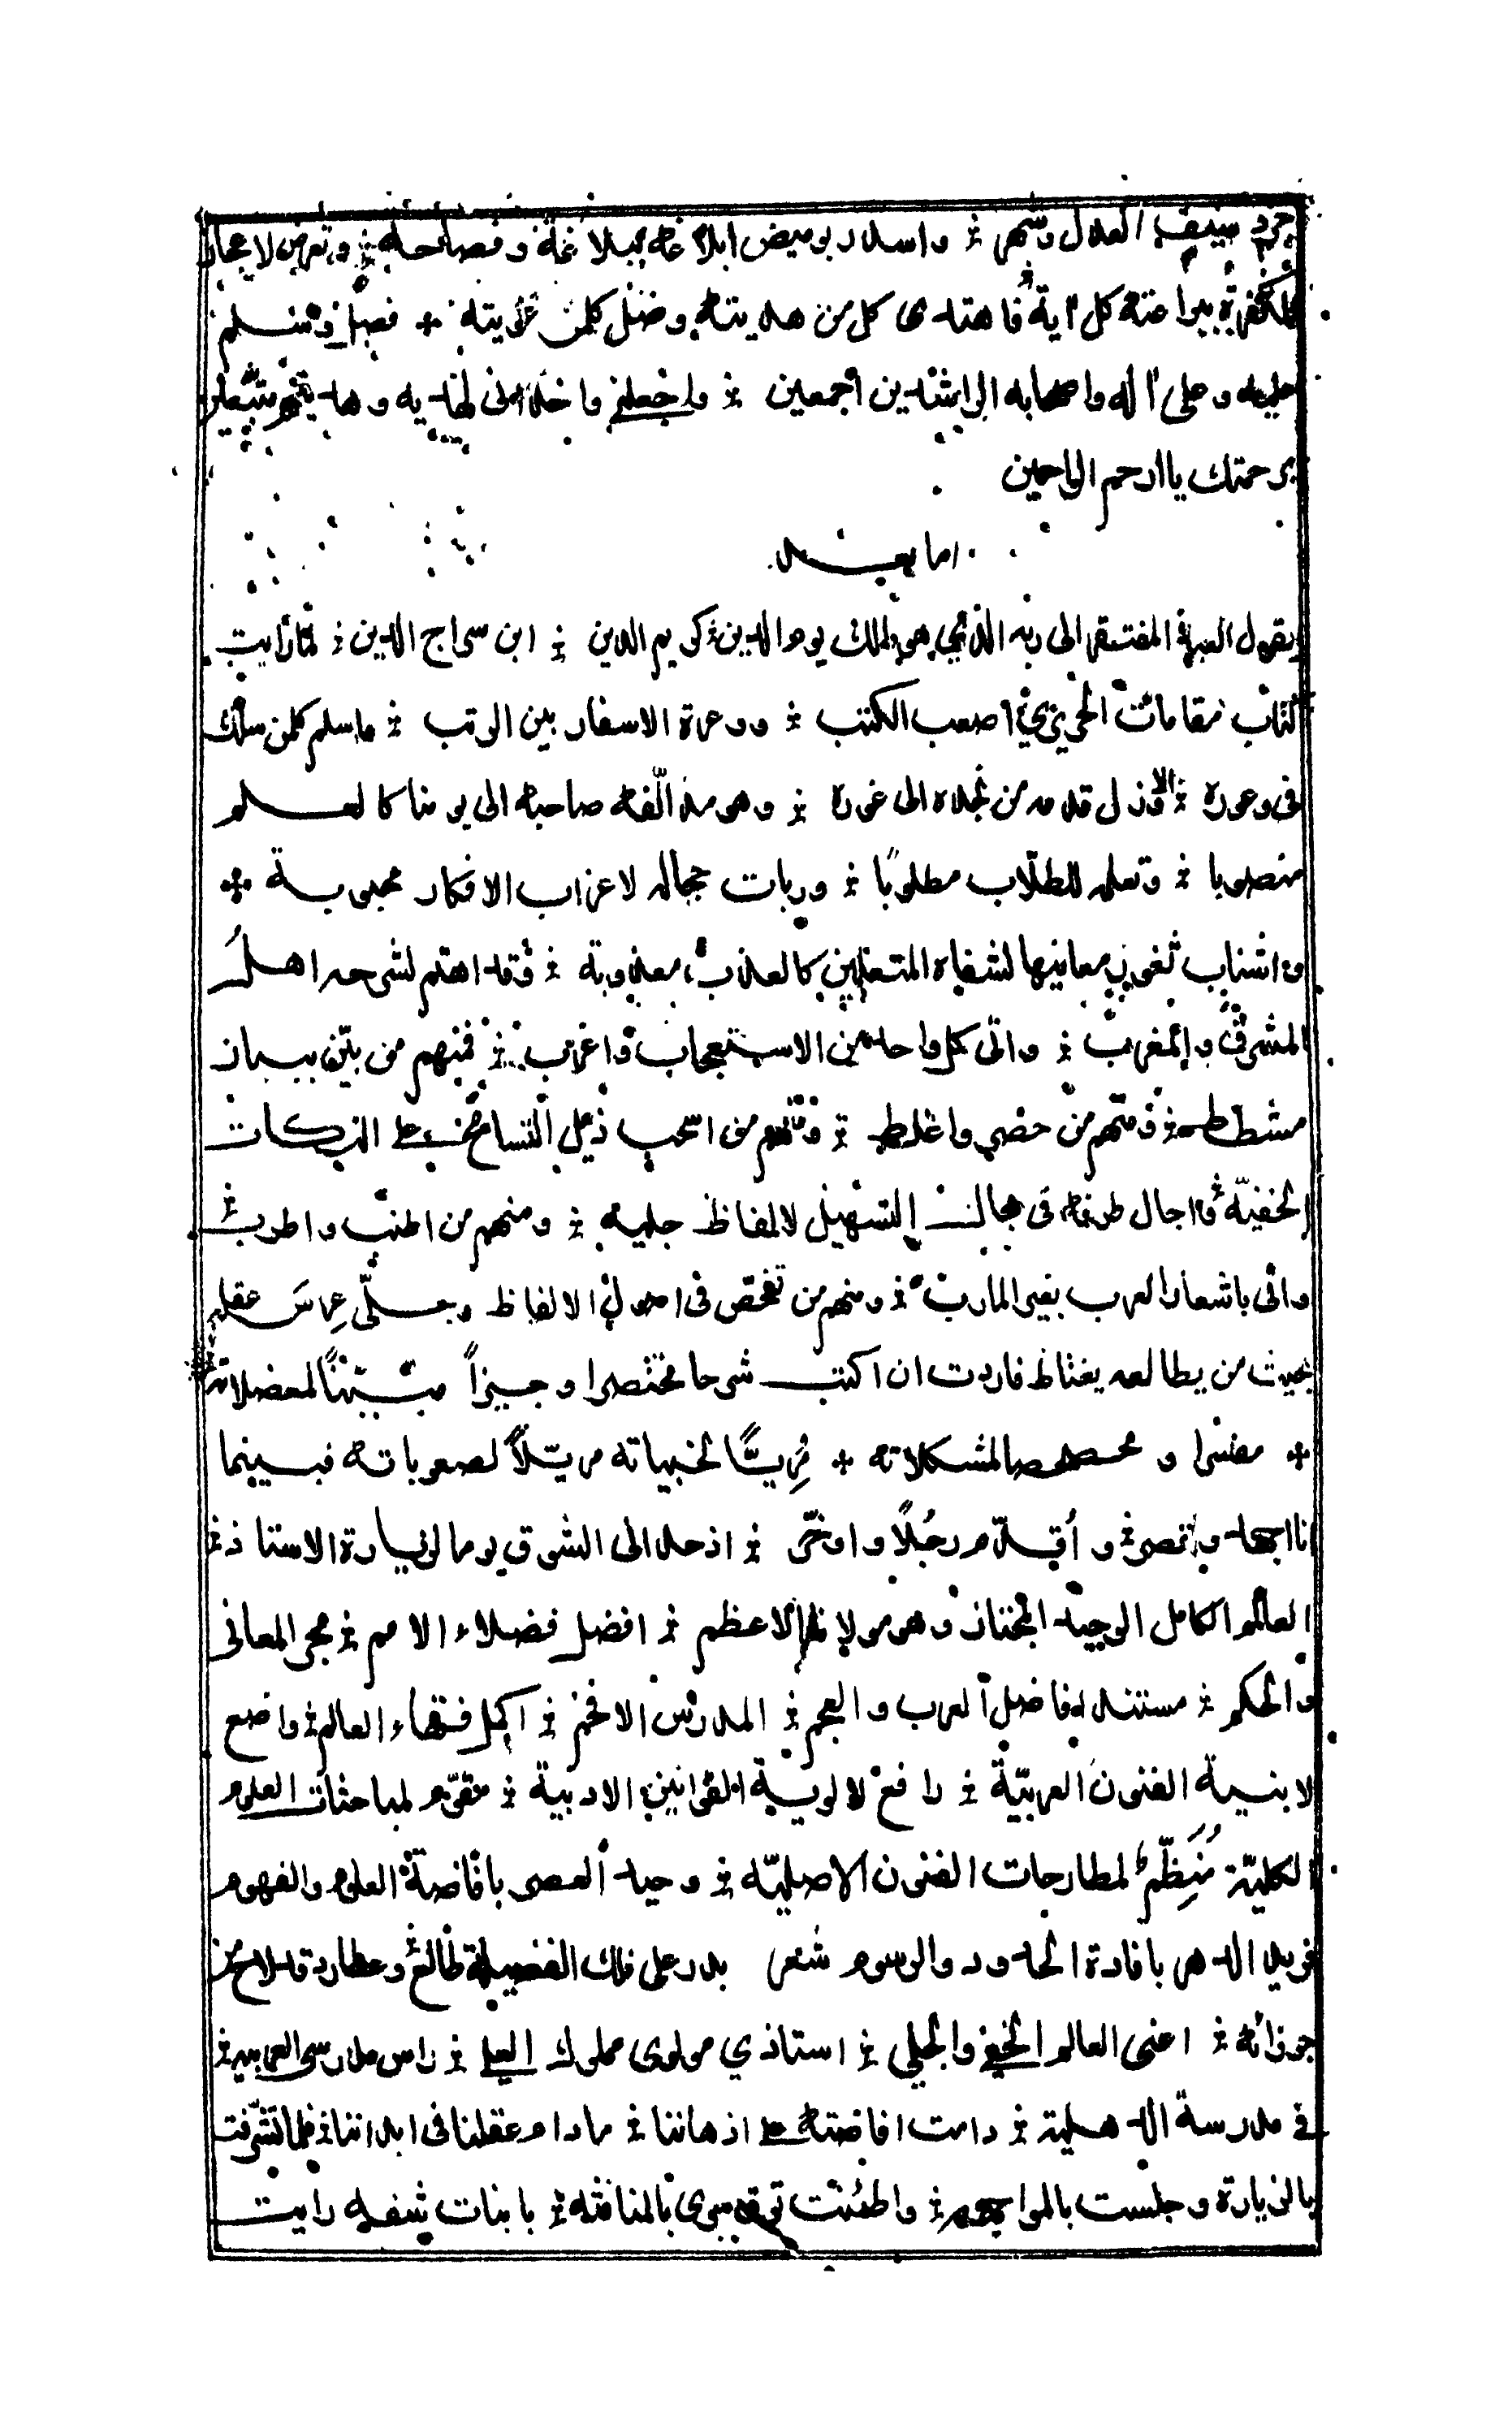 جرد سيف العدل وشهر ؞ واسدد بوميض ابلاغه ببلاغته وفصاحته ؞ وتعرض لاعجاز
ببراعته كل آية فاهتدى كل من هديته وضل كلمن غويته ؞ فصل وسلم
عليه وعلى آله واصحابه الراشدين اجمعين ؞ واجعلني واخلافي
برحمتك يا ارحم الراحمين
اما بعد
يقول العبد المفتقر الى ربه الذي هو لملك يوم الدين ؞ كريم الدين ؞ ابن سراج الدين ؞ لما رأيت
كتاب مقامات الحريري اصعب الكتب ؞ ووعرة الاسفار بين الرتب ؞ ما سلم كلمن سلك
فى وعوره ؞ الا وزل قدمه من نجده الى غوره ؞ وهو مذ الّفه صاحبه الى يومنا كالعلم
منصوبا ؞ وتعلمه للطلّاب مطلوبًا ؞ وربات حجاله لاعزاب الافكار محبوبة ؞
واشناب ثغور معانيها لشفاه المتعلمين كالعذب معذوبة ؞ وقد اهتم لشرحه اهل
المشرق والمغرب ؞ واتى كل واحد من الاستعجاب واغرب ؞ فمنهم من بيّن ببيان
مشطط ؞ ومنهم من حضر واغلط ؞ ومنهم من اسحب ذيل التسامح على النكات
الخفيّة واجال طرفه فى مجال التسهيل لالفاظ جلية ؞ ومنهم من اطنب واطرب ؞
واتى باشعار العرب بغير المارب ؞ ومنهم من تفحّص فى اصول الالفاظ وجلّى عراس عقله
بحيث من يطالعه يغتاظ فاردت ان اكتب شرحا مختصرا وجيزاً مبيّنًا لمعضلاته
؞ مفسرا ومحصحصا لمشكلاته ؞ مزيّنًا لخبياته مرتّلاً لصعوباته فبينما
انا اجهد واقصر ؞ و أقدّم رجُلًا واوخّر ؞ اذ حدانى الشوق يوما لزيارة الاستاذ ؞
العالم الكامل الوجيد المجتاز ؞ وهو مولانا الاعظم ؞ افضل فضلاء الامم ؞ محى المعانى
والحكم ؞ مستند افاضل العرب والعجم ؞ المدرس الافخر ؞ اكمل فقهاء العالم ؞ واضع
لابنية الفنون العربيّة ؞ رافع لالوية القوانين الادبية ؞ مقوّم لمباحثات العلوم
الكليّة مُنَظِّم لمطارحات الفنون الاصليّه ؞ وحيد العصر بافاضة العلوم والفهوم
فريد الدهر بافادة الحدود والرسوم شعر بدر على فلك الفضيلة طالع ؞ وعطارد قد لاح من
جوزائه ؞ اعنى العالم الخفي والجلي ؞ استاذي مولوى مملوك العلي ؞ راس مدرسى العربيه ؞
في مدرسة الدهلية ؞ دامت افاضته على اذهاننا ؞ مادام عقلنا فى ابداننا ؞ فلما تشرّفت
بالزيارة وجلست بالمواجهه ؞ واطمئنت بالمنافثه ؞ بابنات شفه رايت